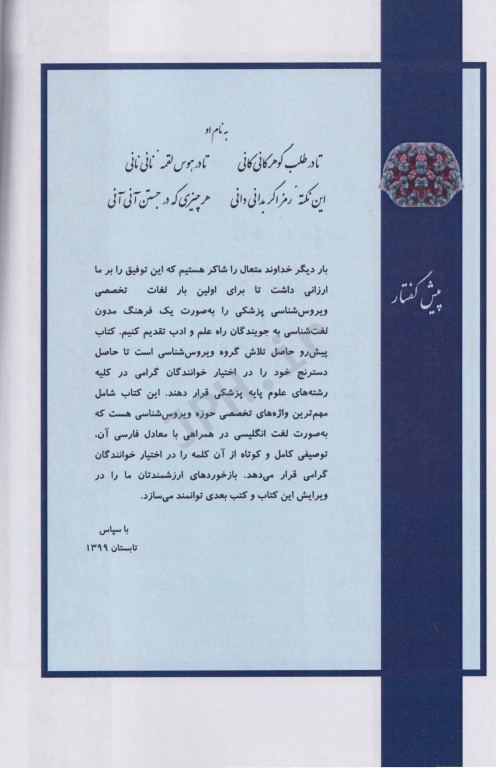 به نام او
تا در طلب گوهر کانی کانی تا در هوس لقمهٔ نانی نانی
این نکتهٔ رمز اگر بدانی دانی هر چیزی که در جستن آنی آنی
پیش گفتار
بار دیگر خداوند متعال را شاکر هستیم که این توفیق را بر ما
ارزانی داشت تا برای اولین بار لغات تخصصی
ویروس‌شناسی پزشکی را به‌صورت یک فرهنگ مدون
لغت‌شناسی به جویندگان راه علم و ادب تقدیم کنیم. کتاب
پیش‌رو حاصل تلاش گروه ویروس‌شناسی است تا حاصل
دسترنج خود را در اختیار خوانندگان گرامی در کلیه
رشته‌های علوم پایه پزشکی قرار دهند. این کتاب شامل
مهم‌ترین واژه‌های تخصصی حوزه ویروس‌شناسی هست که
به‌صورت لغت انگلیسی در همراهی با معادل فارسی آن،
توصیفی کامل و کوتاه از آن کلمه را در اختیار خوانندگان
گرامی قرار می‌دهد. بازخوردهای ارزشمندتان ما را در
ویرایش این کتاب و کتب بعدی توانمند می‌سازد.
با سپاس
تابستان ۱۳۹۹